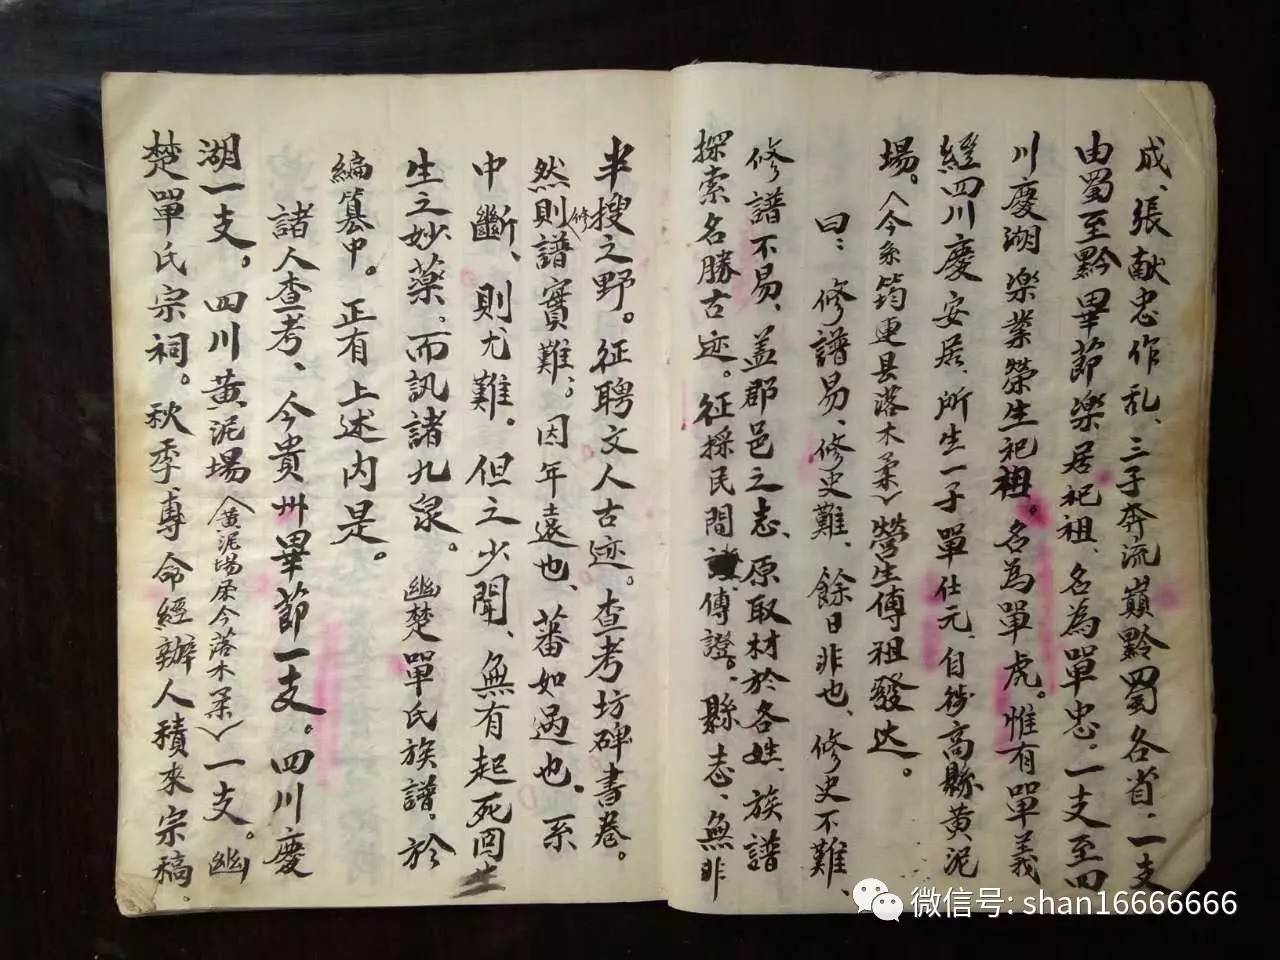 成、張献忠作乱、三子奔流巔黔蜀各省、一支
由蜀至黔畢節樂居祀祖、名為單忠、一支至四
川慶湖樂業榮生祀祖。名為單虎。惟有單義
經四川慶安居、所生一子單仕元、自徙高縣黃泥
場。〈今系筠連县落木柔〉營生傅祖發达。
曰：修譜易、修史難、餘日非也、修史不難、
修譜不易、盖郡邑之志、原取材於各姓、族譜
探索名勝古迹。征採民間傅證。縣志、無非
半搜之野。征聘文人古迹。查考坊碑書卷。
然則修譜實難；因年遠也、蕃如過也、系
中斷、則尤難。但之少聞、無有起死回
生之妙藥。而訊諸九泉。幽楚單氏族譜、於
編篡中。正有上述内是。
諸人查考、今貴州畢節一支。四川慶
湖一支。四川黄泥場〈黄泥場屬今落木柔〉一支。幽
楚單氏宗祠。秋季、專命經辦人積來宗稿。
微信号: shan16666666